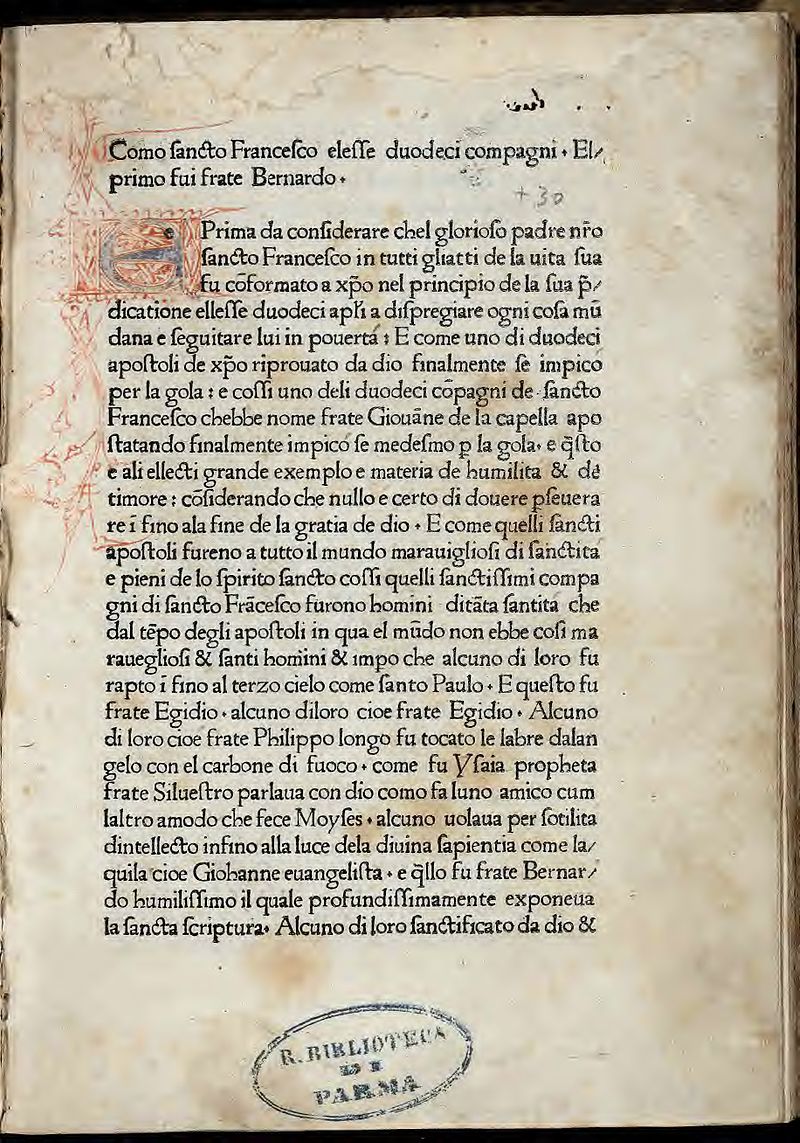 Como ſancto Franceſco eleſſe duodeci compagni · El/
primo fui frate Bernardo ·
+ 30
e Prima da conſiderare chel glorioſo padre nr̄o
ſancto Franceſco in tutti gliatti de la uita ſua
fu cōformato a xp̄o nel principio de la ſua p̄/
dicatione elleſſe duodeci apl̄i a diſpregiare ogni coſa mū
dana e ſeguitare lui in pouertá : E come uno di duodeci
apoſtoli de xp̄o riprouato da dio finalmente ſe impico
per la gola : e coſſi uno deli duodeci cōpagni de ſancto
Franceſco chebbe nome frate Giouāne de la capella apo
ſtatando finalmente impico ſe medeſmo p la gola · e q̄ſto
e ali ellecti grande exemplo e materia de humilita & de
timore : cōſiderando che nullo e certo di douere pſeuera
re ī fino ala fine de la gratia de dio · E come quelli ſancti
apoſtoli fureno a tutto il mundo marauiglioſi di ſanctita
e pieni de lo ſpirito ſancto coſſi quelli ſanctiſſimi compa
gni di ſancto Frāceſco furono homini ditāta ſantita che
dal tēpo degli apoſtoli in qua el mūdo non ebbe coſi ma
raueglioſi & ſanti homini & impo che alcuno di loro fu
rapto ī fino al terzo cielo come ſanto Paulo · E queſto fu
frate Egidio · alcuno diloro cioe frate Egidio · Alcuno
di loro cioe frate Philippo longo fu tocato le labre dalan
gelo con el carbone di fuoco · come fu Yſaia propheta
frate Silueſtro parlaua con dio como fa luno amico cum
laltro amodo che fece Moyſes · alcuno uolaua per ſotilita
dintellecto infino alla luce dela diuina ſapientia come la/
quila cioe Giohanne euangeliſta · e q̄llo fu frate Bernar/
do humiliſſimo il quale profundiſſimamente exponeua
la ſancta ſcriptura · Alcuno di loro ſanctificato da dio &
R. BIBLIOTECA
DI
PARMA